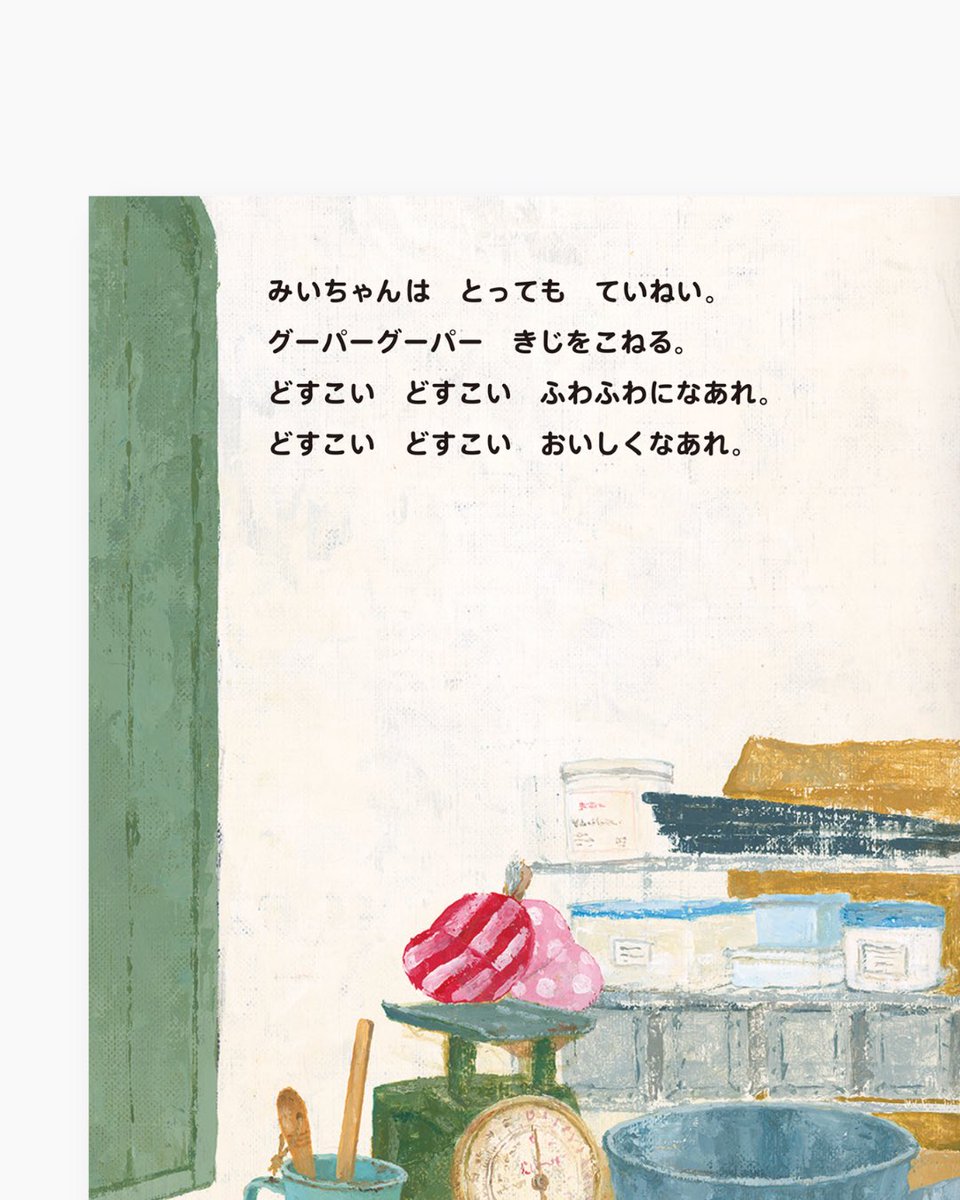 みいちゃんは　とっても　ていねい。
グーパーグーパー　きじをこねる。
どすこい　どすこい　ふわふわになあれ。
どすこい　どすこい　おいしくなあれ。